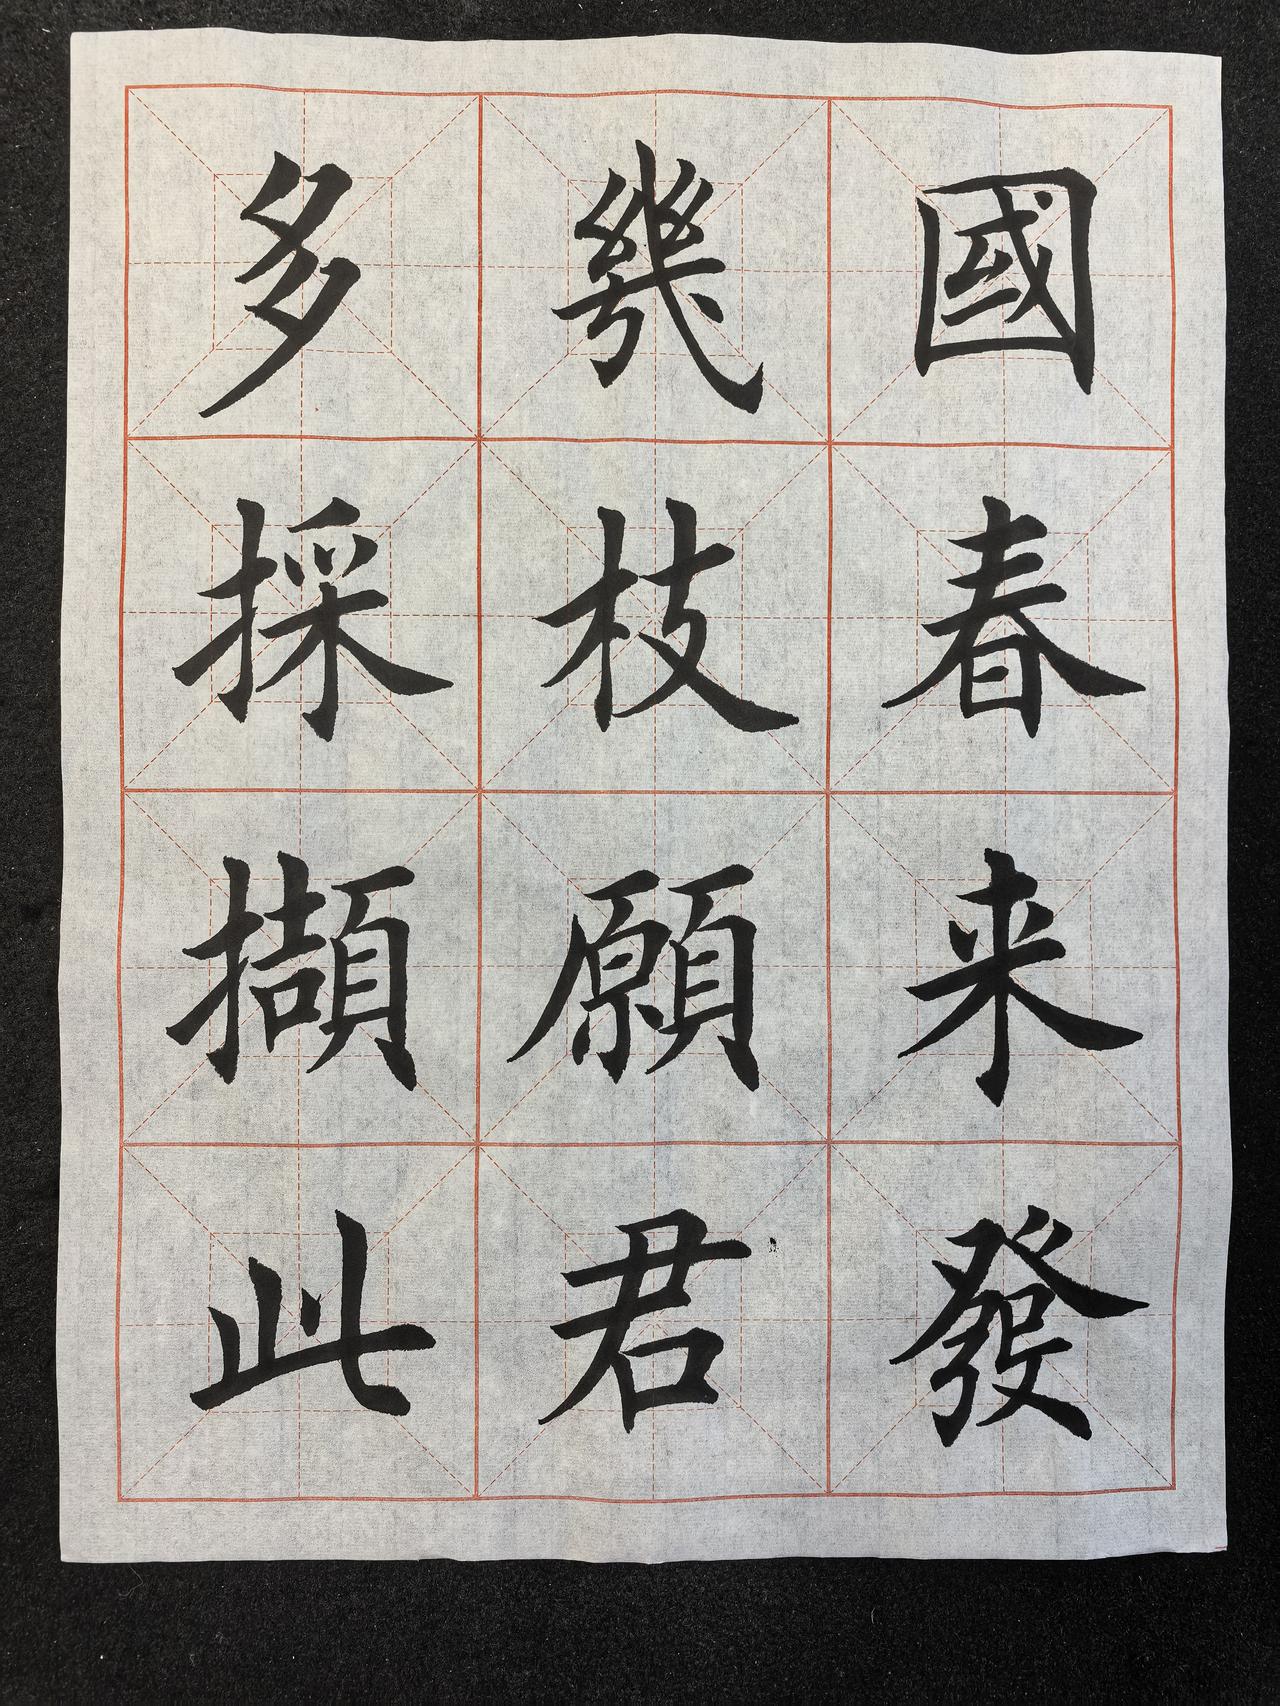 國春来發
幾枝願君
多採擷此